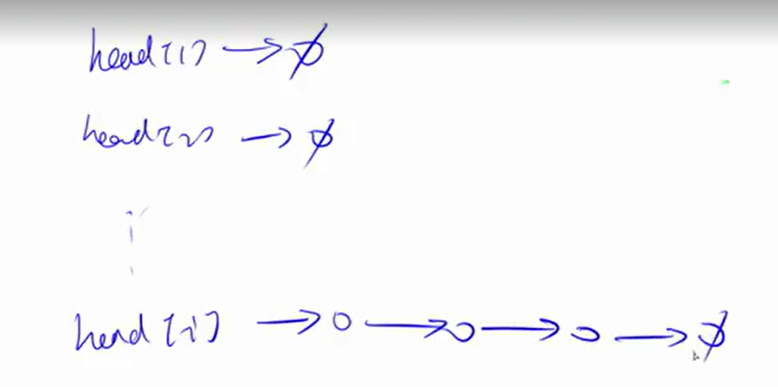 head[1] → ∅
head[2] → ∅
head[i] → o → o → o → ∅